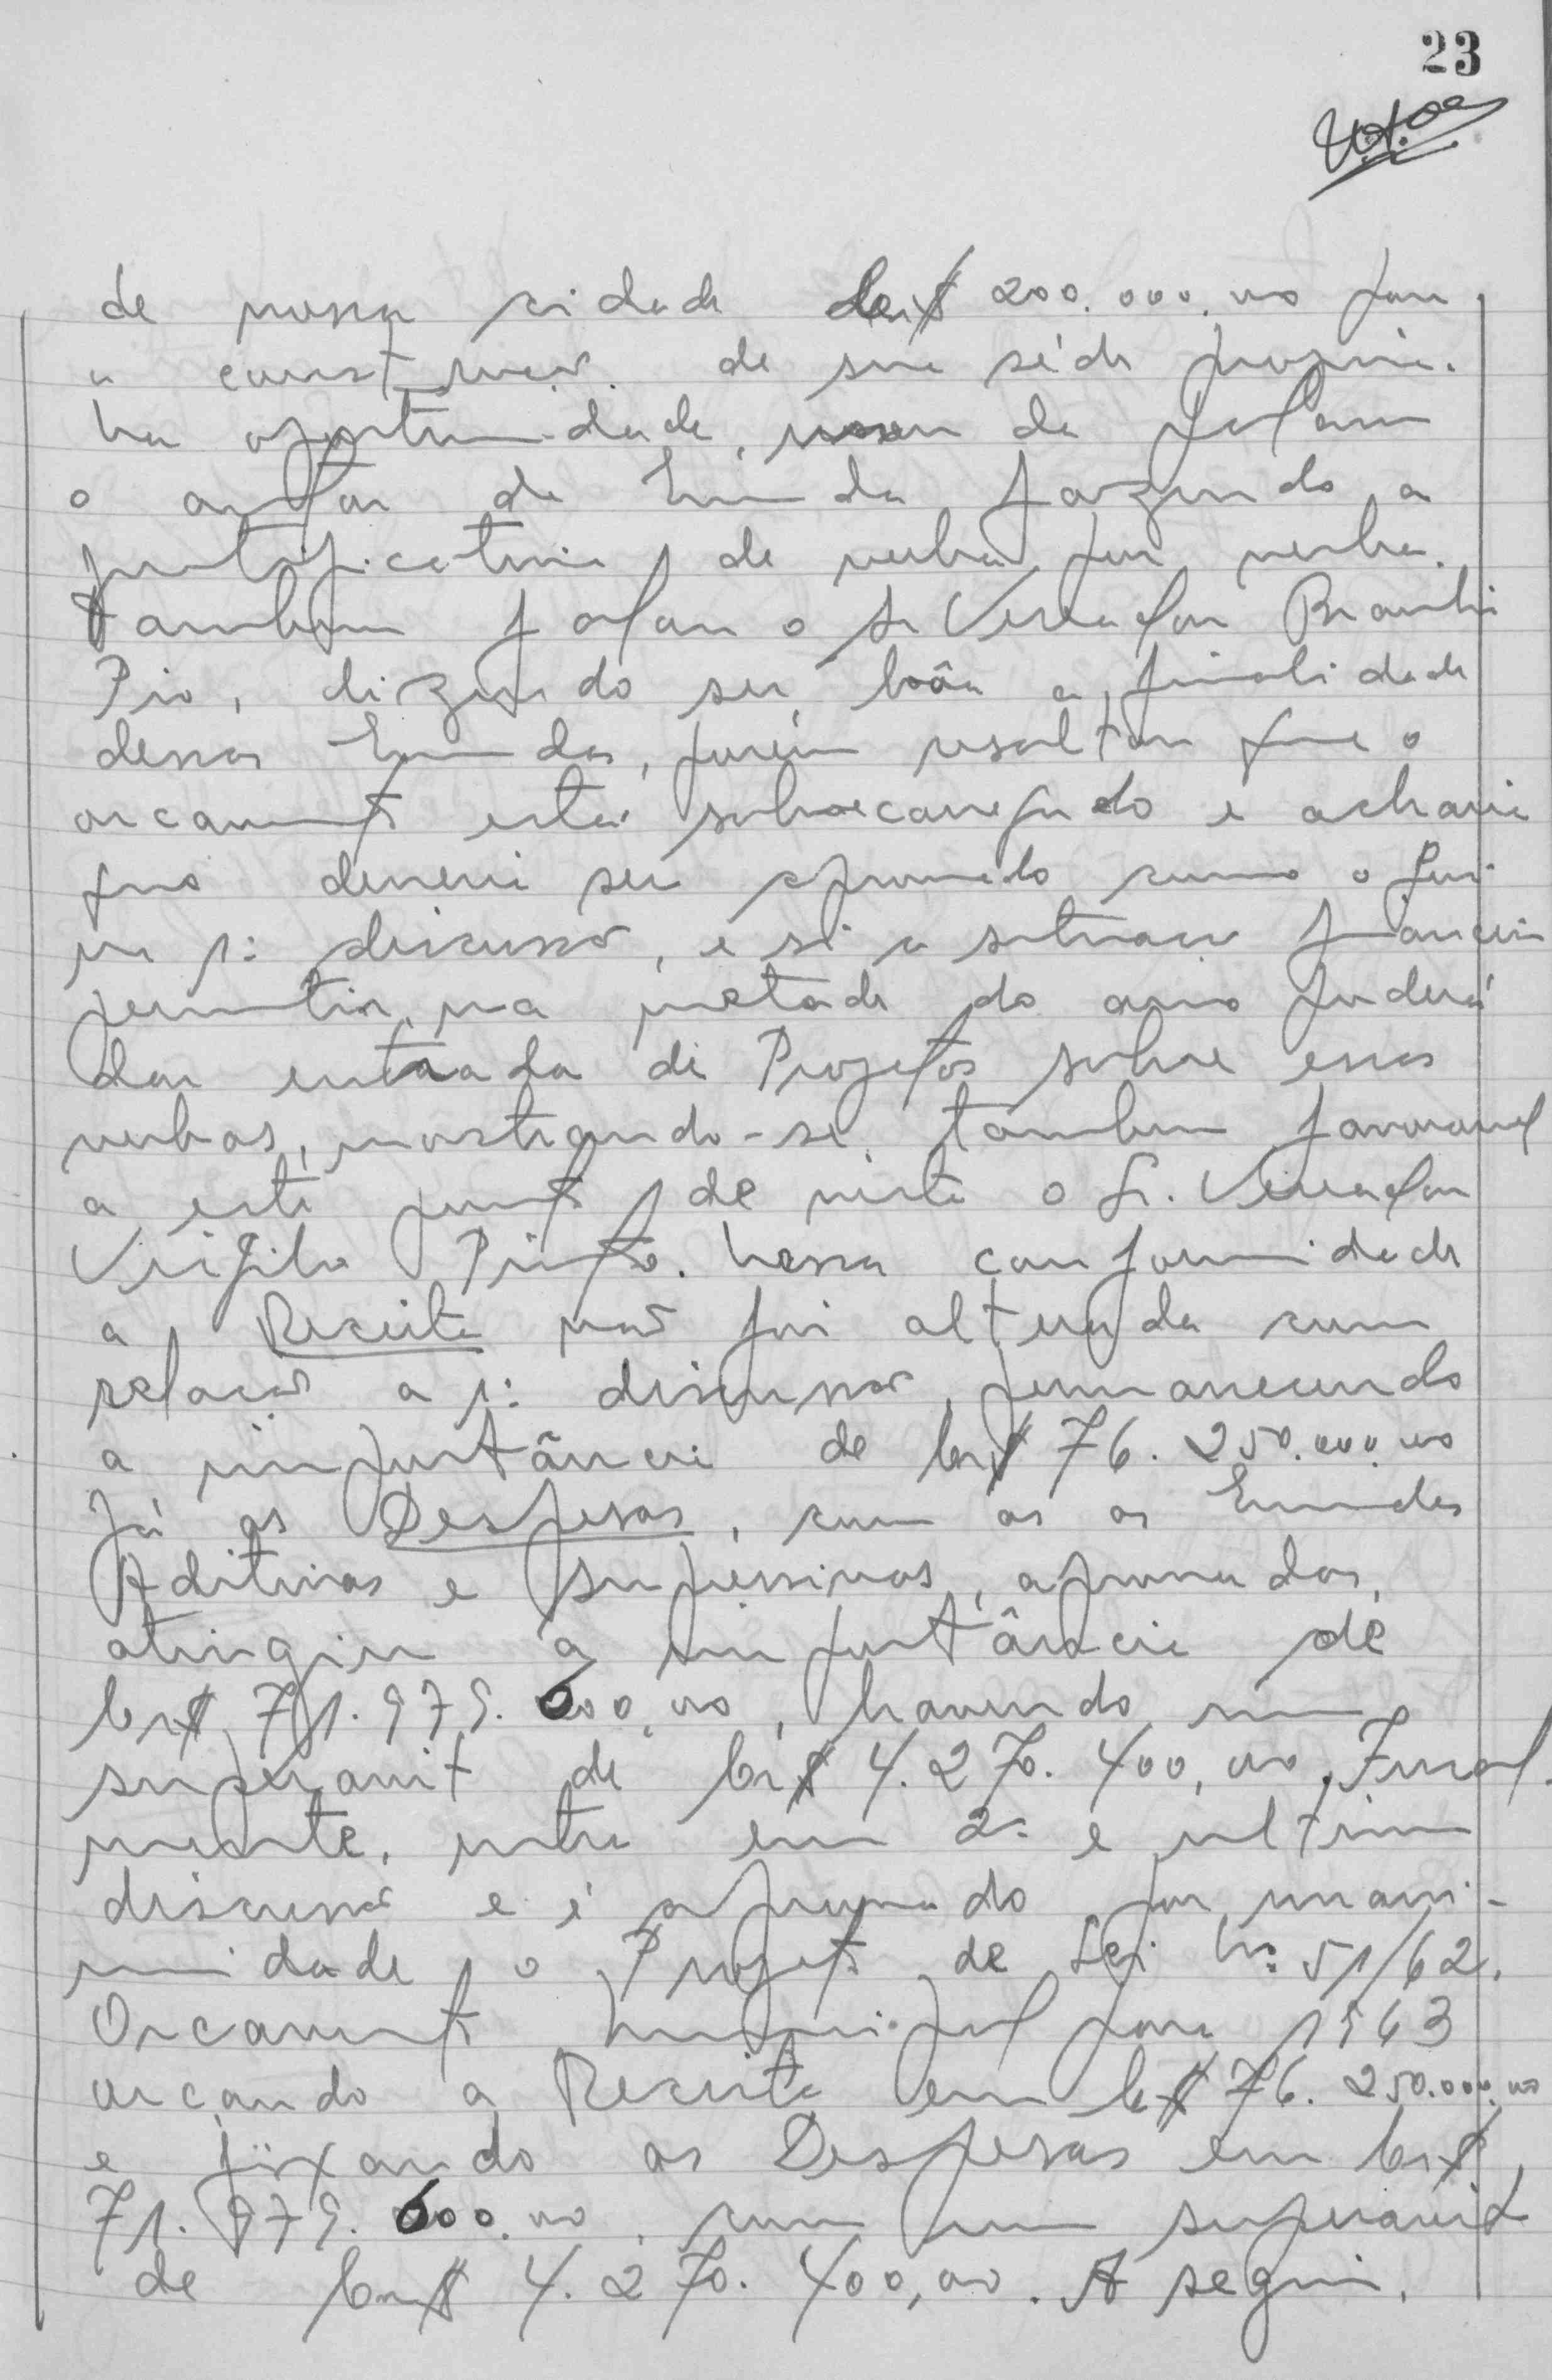 23
de nossa cidade Cr$ 200.000,00 para
a construção de sua séde propria.
Na oportunidade, de falara
o autor da Emenda fazendo a
justificativa de verba por verba.
Tambem falou o Sr Vereador Brambi
Pio, dizendo ser bôa a finalidade
dessas Emendas, porém resaltou que o
orcamento está sobrecarregado e acharia
que deveria ser aprovado como o foi
na 1ª discussão, e si a situacao financeira
permitir, na metade do ano poderá
dar entrada de Projetos sobre essas
verbas, mostrando-se tambem favoravel
a este ponto de vista o Sr. Vereador
Virgilio Pinto. Nessa conformidade
a Receita não foi alterada com
relacão a 1ª discussão, permanecendo
a importância de Cr$ 76.250.000,00
Já as Despesas, com as as Emendas
Aditivas e Supressivas, aprovadas,
atingiu a importância de
Cr$ 71.979.600,00, havendo um
superavit de Cr$ 4.270.400,00. Final-
mente, entra em 2ª e ultima
discussão e é aprovado por unani-
midade o Projeto de Lei Nº 51/62.
Orcamento Municipal para 1963
orçando a Receita em Cr$ 76.250.000,00
e fixando as Despesas em Cr$
71.979.600,00, com um superavit
de Cr$ 4.270.400,00. A seguir,